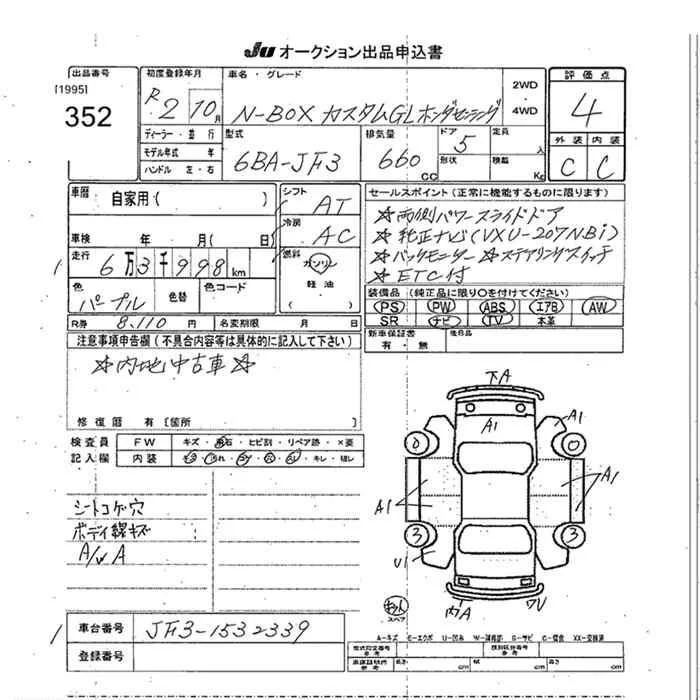 JU オークション出品申込書
出品番号
[1995]
352
初度登録年月
R2 10月
車名・グレード
N-BOX カスタムGLホンダセンシング
2WD
・
4WD
評価点
4
外装 内装
C C
ディーラー・並行
モデル年式 年
ハンドル 左・右
型式
6BA-JF3
排気量
660 CC
ドア
5
形状
定員
人
積載
Kg
車歴
自家用( )
車検 年 月( 日)
走行 6万3千998 km
色
パープル
色替
色コード
シフト
AT
冷房
AC
燃料
ガソリン
軽油
( )
R券 8,110 円 名変期限 月 日
セールスポイント(正常に機能するものに限ります)
☆両側パワースライドドア
☆純正ナビ(VXU-207NBi)
☆バックモニター ☆ステアリングスイッチ
☆ETC付
装備品 (純正品に限り○を付けてください)
PS PW ABS エアB AW
SR ナビ TV 本革
新車保証書
有・無
後日品
注意事項申告欄(不具合内容等は具体的に記入して下さい)
☆内地中古車☆
修復歴 有[箇所 ]
検査員
記入欄
FW キズ・飛石・ヒビ割・リペア跡・×要
内装 キズ・汚れ・コゲ・穴・ハリ・キレ・破レ
シートコゲ穴
ボディ線キズ
A/W A
下A
A1
A1
A1
A1
U1
内A
ワV
スペア
A-キズ E-エクボ U-凹み W-補修跡 S-サビ C-腐食 XX-交換済
車台番号
JF3-1532339
登録番号
型式指定番号
参考
類別区分番号
参考
車庫証明用
参考
長さ cm 幅 cm 高さ cm